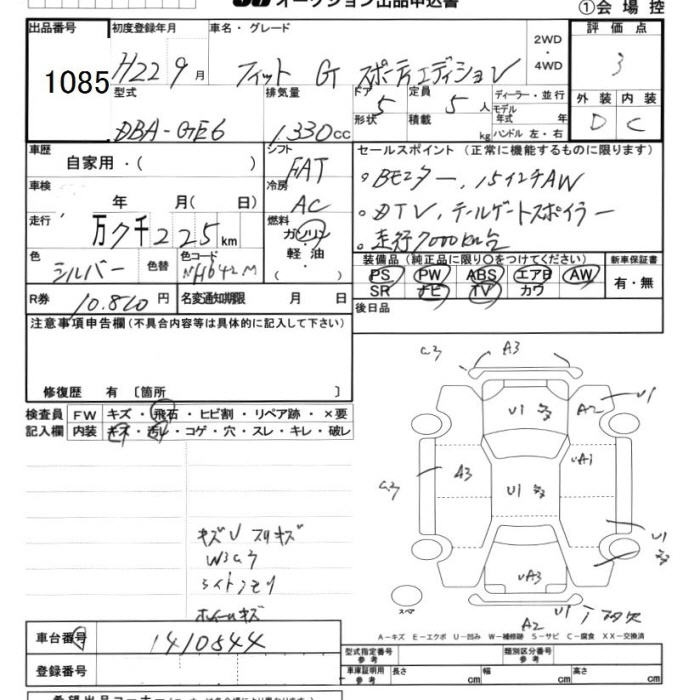 オークション出品申込書
①会場控
出品番号 初度登録年月 車名・グレード 2WD ・ 4WD 評価点
1085 H22 9月 フィット G スポーティエディション 3
型式 排気量 ドア 形状 5 定員 5人 積載 kg ディーラー・並行 モデル年式 年 ハンドル 左・右 外装 内装
DBA-GE6 1330cc D C
車歴 自家用・( ) シフト FAT セールスポイント (正常に機能するものに限ります)
車検 年 月( 日) 冷房 AC 。BEモター, 15インチAW
走行 万7千225km 燃料 ガソリン 軽・油 ・( ) 。DTV, テールゲートスポイラー
。走行7000km台
色 シルバー 色替 色コード NH642M 装備品 (純正品に限り○をつけてください) 新車保証書
PS PW ABS エアB AW 有・無
SR ナビ TV カワ
R券 10.820円 名変通知期限 月 日 後日品
注意事項申告欄 (不具合内容等は具体的に記入して下さい)
修復歴 有 〔箇所 〕
検査員 FW キズ・飛石・ヒビ割・リペア跡・×要
記入欄 内装 キズ・汚れ・コゲ・穴・スレ・キレ・破レ
A3
U1 A2 U1
A3 U1 UA1
U1
UA3
スペア A2 U1
キズU スリキズ
W3
ライトクモリ
ホイールキズ
A-キズ E-エクボ U-凹み W-補修跡 S-サビ C-腐食 XX-交換済
車台番号 1410544
登録番号
型式指定番号 参考 類別区分番号 参考
車庫証明用 参考 長さ cm 幅 cm 高さ cm
希望出品コーナー